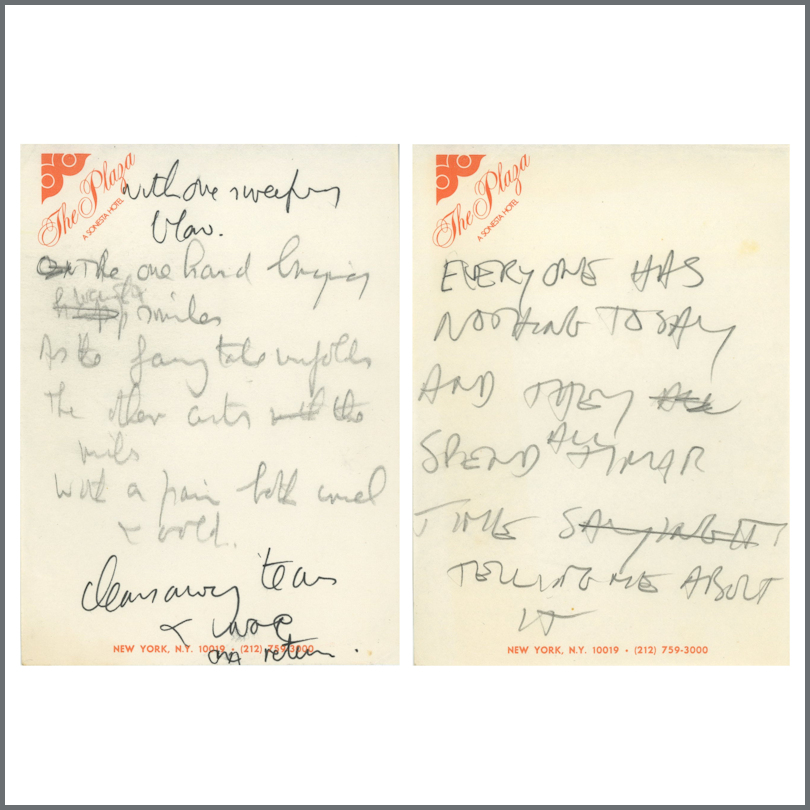 The Plaza
A SONESTA HOTEL
with one sweeping
blow.
The one hand bringing
smiles
As the fairy tale unfolds
The other cuts with the
With a pain both cruel
&
clears away tears
&
return.
NEW YORK, N.Y. 10019 • (212) 759-3000
The Plaza
A SONESTA HOTEL
EVERYONE HAS
NOTHING TO SAY
AND THEY ALL
SPEND ALL THEIR
TIME SAYING IT
TELLING ME ABOUT
IT
NEW YORK, N.Y. 10019 • (212) 759-3000